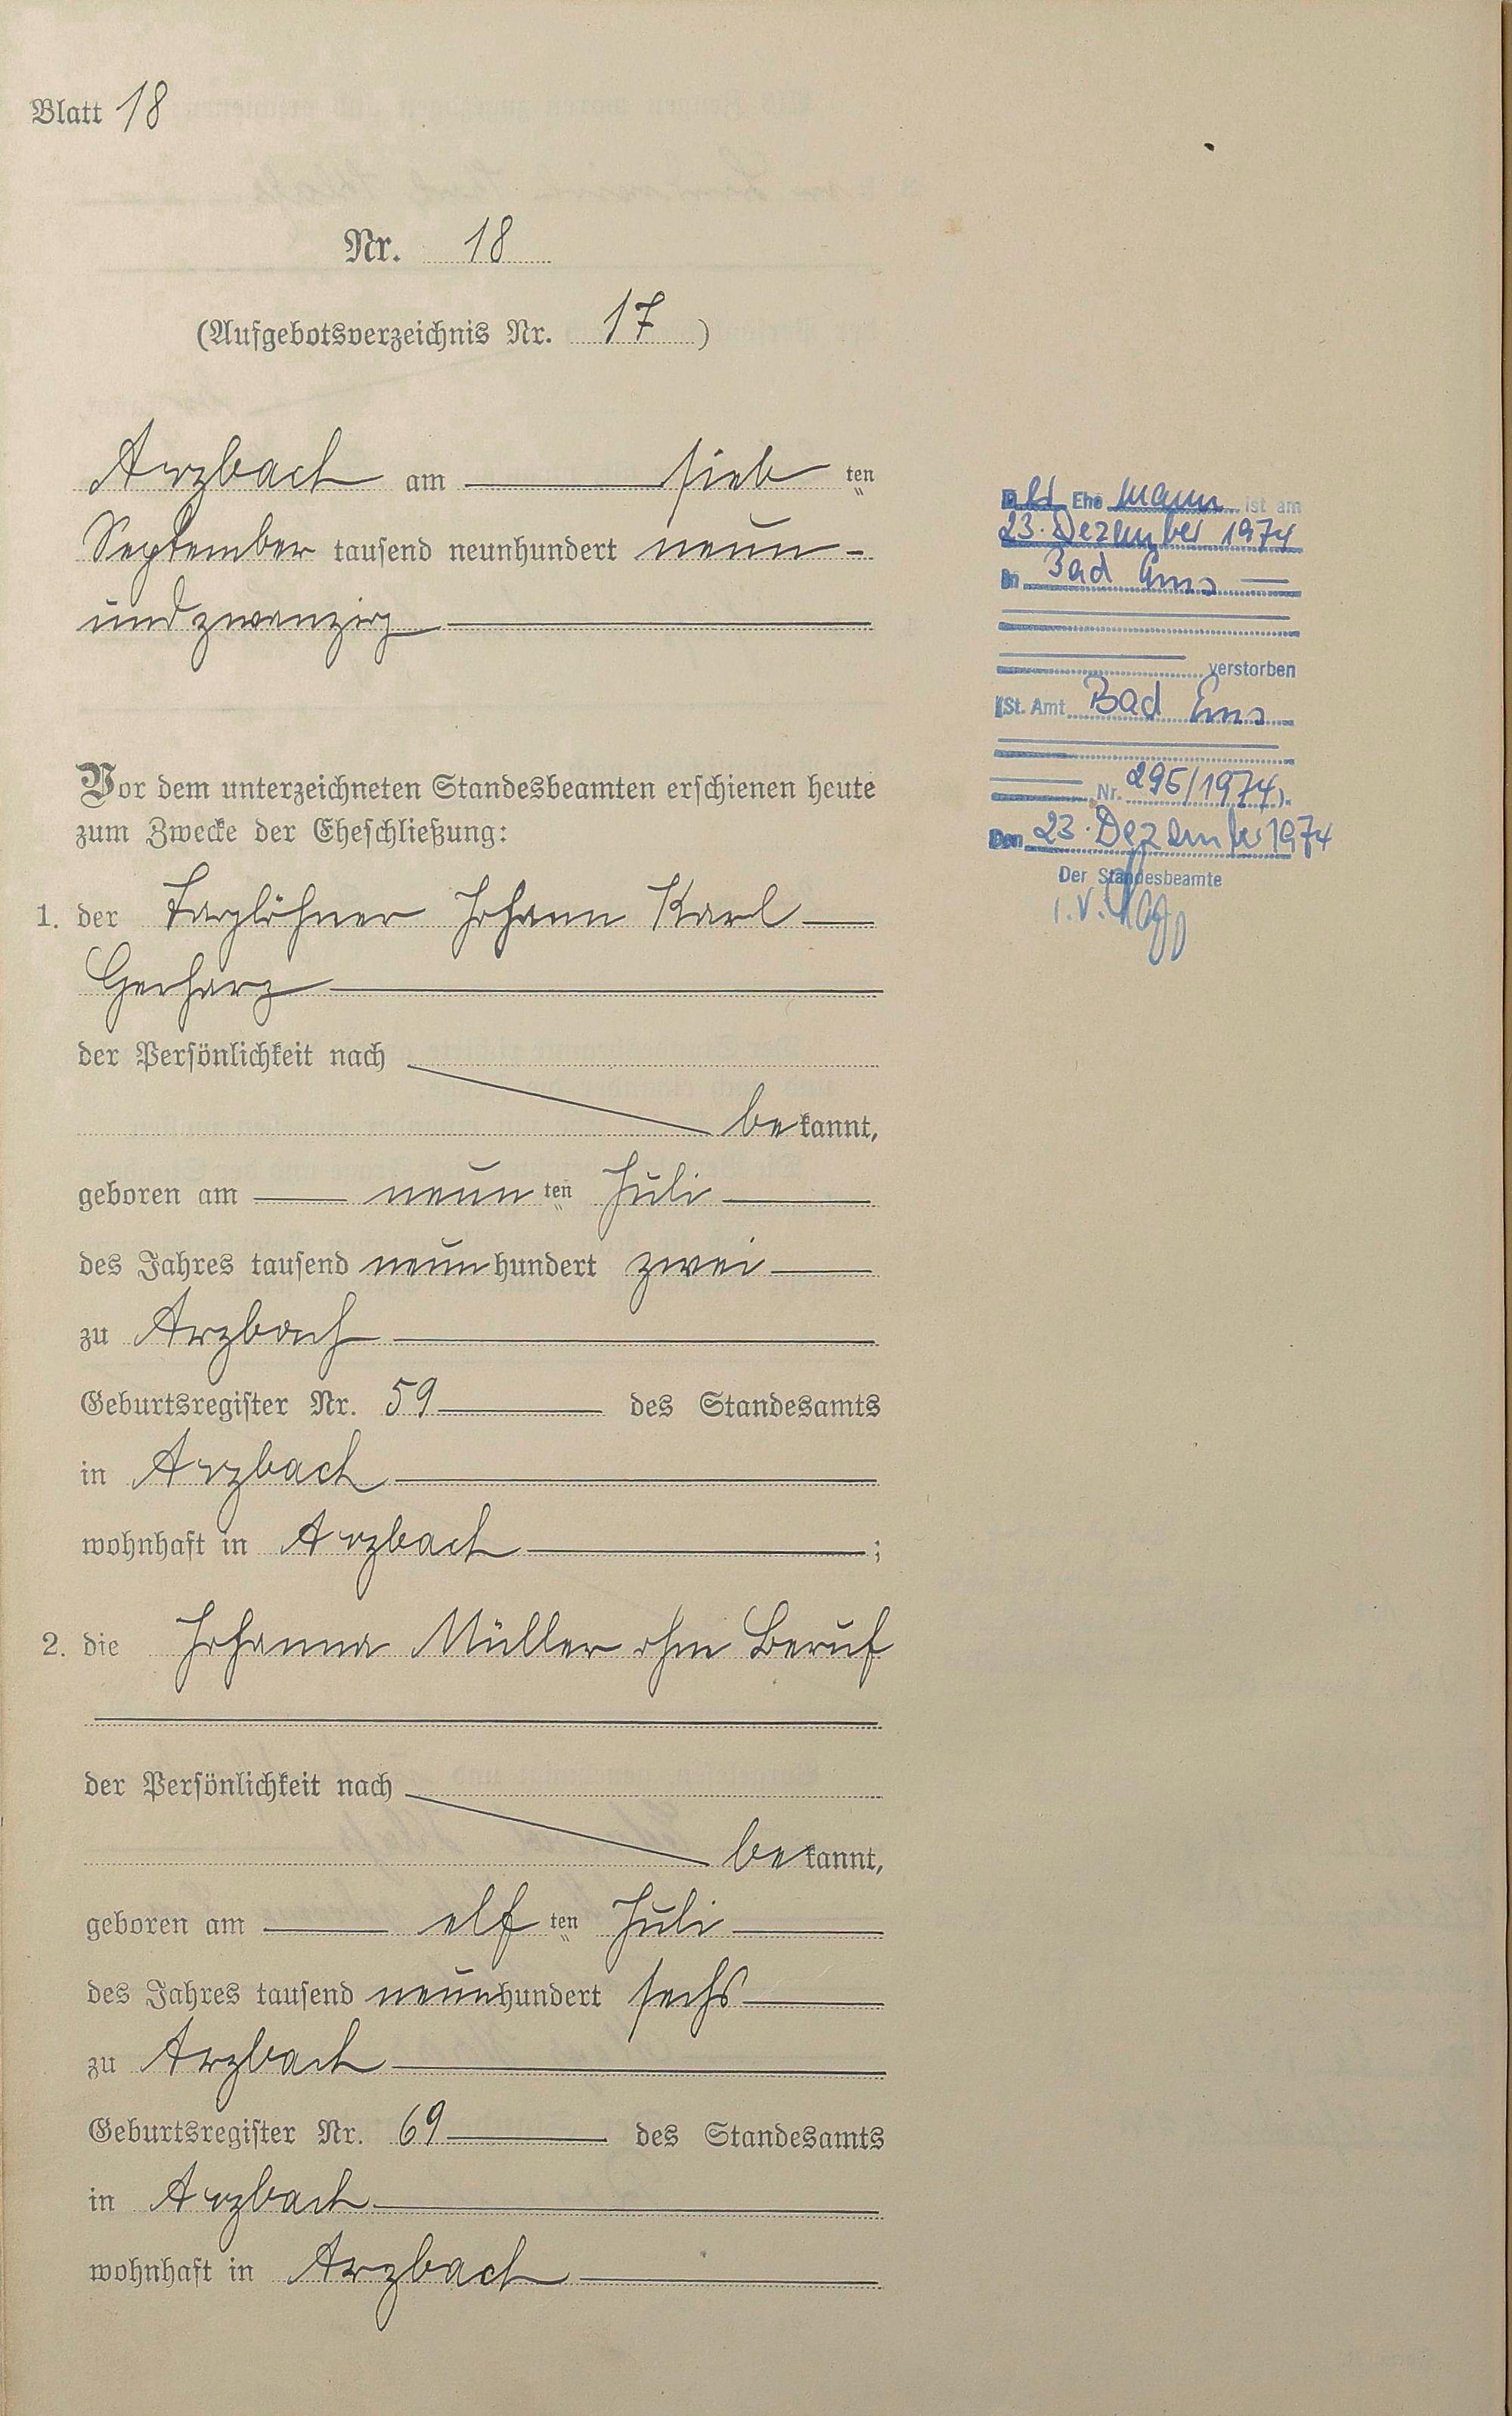 Blatt 18
Nr. 18
(Aufgebotsverzeichnis Nr. 17)
Arzbach am sieb ten
September tausend neunhundert neun-
undzwanzig
Vor dem unterzeichneten Standesbeamten erschienen heute
zum Zwecke der Eheschließung:
1. der Taglöhner Johann Karl
Gerharz
der Persönlichkeit nach
bekannt,
geboren am neun ten Juli
des Jahres tausend neunhundert zwei
zu Arzbach
Geburtsregister Nr. 59 des Standesamts
in Arzbach
wohnhaft in Arzbach;
2. die Johanna Müller ohne Beruf
der Persönlichkeit nach
bekannt,
geboren am elf ten Juli
des Jahres tausend neunhundert sechs
zu Arzbach
Geburtsregister Nr. 69 des Standesamts
in Arzbach
wohnhaft in Arzbach
Der Ehe mann ist am
23. Dezember 1974
in Bad Ems
verstorben
(St. Amt Bad Ems
Nr. 295/1974).
Den 23. Dezember 1974
Der Standesbeamte
i.V.